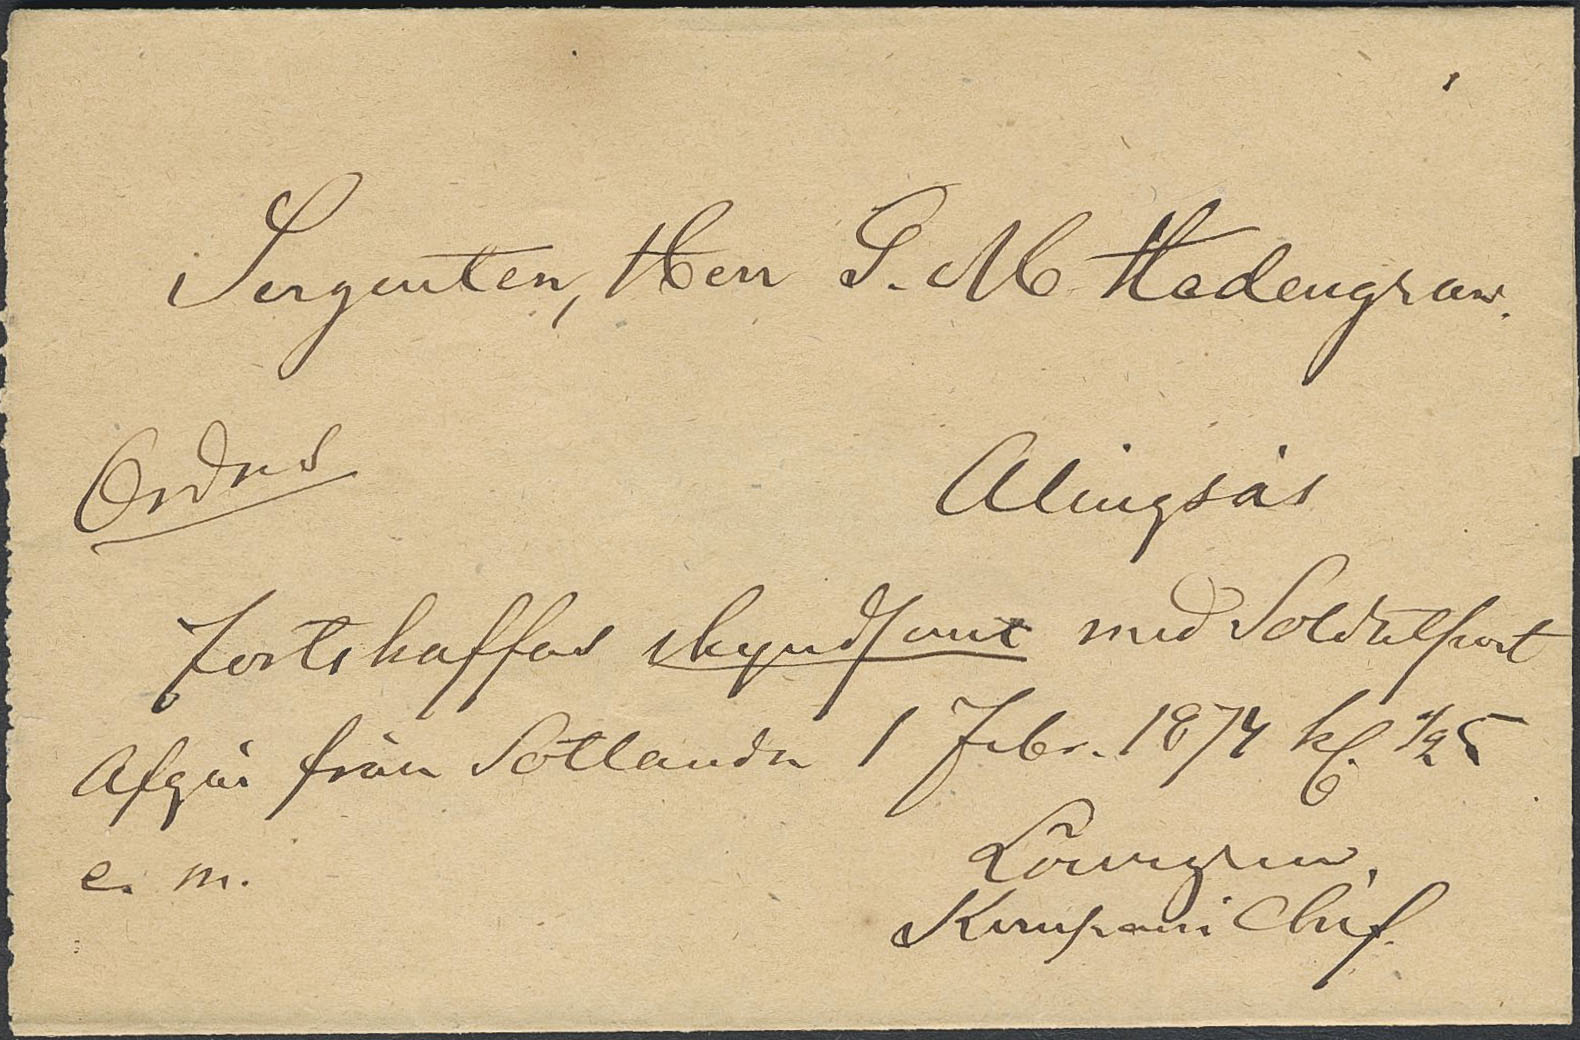 Sergenten, Herr G. M Hedengran.
Ordres
Alingsås
Fortskaffas skyndsamt med Soldatpost
Afgår från Sötlanda 1 Febr. 1874 kl. 1/2 5
e. m.
Löwegren,
Kompani Chef.